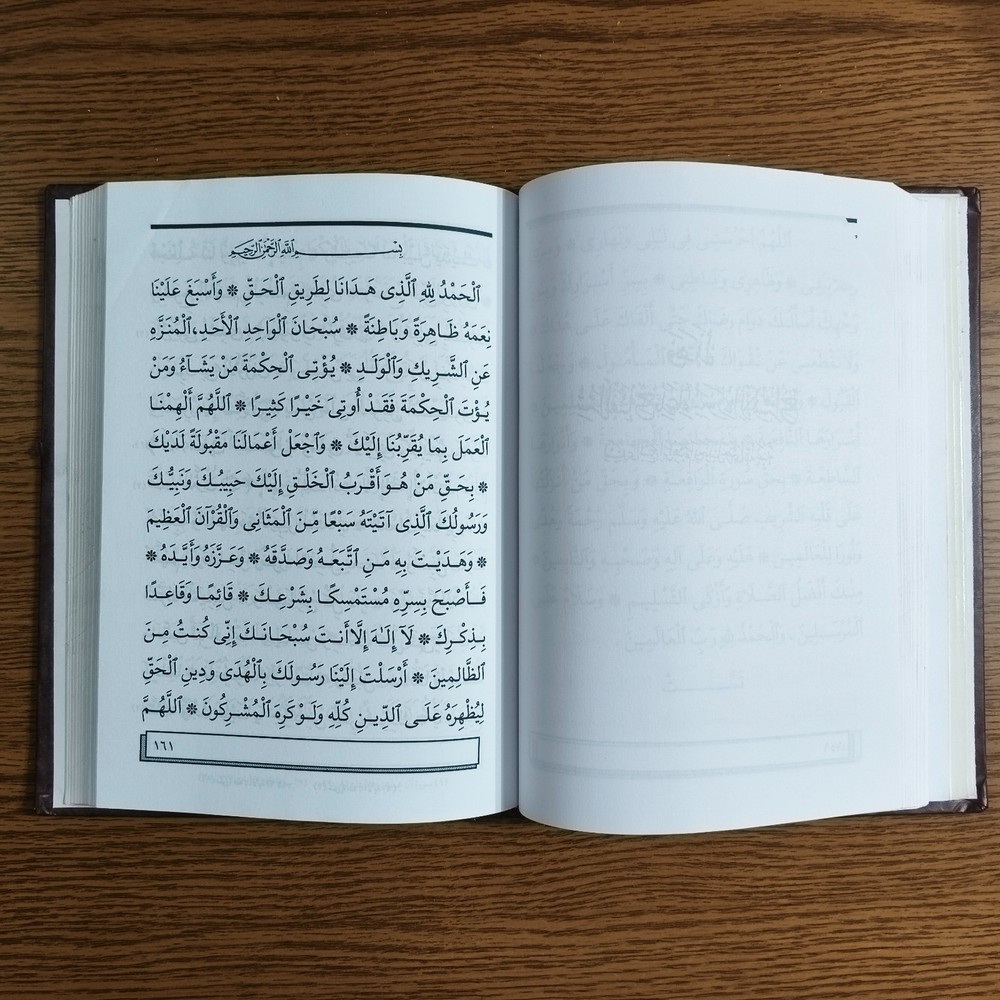 بِسْمِ ٱللَّهِ ٱلرَّحْمَٰنِ ٱلرَّحِيمِ
ٱلْحَمْدُ لِلهِ ٱلَّذِى هَدَانَا لِطَرِيقِ ٱلْحَقِّ ❊ وَأَسْبَغَ عَلَيْنَا
نِعَمَهُ ظَاهِرَةً وَبَاطِنَةً ❊ سُبْحَانَ ٱلْوَاحِدِ ٱلْأَحَدِ، ٱلْمُنَزَّهِ
عَنِ ٱلشَّرِيكِ وَٱلْوَلَدِ ❊ يُؤْتِى ٱلْحِكْمَةَ مَنْ يَشَآءُ وَمَنْ
يُؤْتَ ٱلْحِكْمَةَ فَقَدْ أُوتِىَ خَيْرًا كَثِيرًا ❊ ٱللَّهُمَّ أَلْهِمْنَا
ٱلْعَمَلَ بِمَا يُقَرِّبُنَا إِلَيْكَ ❊ وَٱجْعَلْ أَعْمَالَنَا مَقْبُولَةً لَدَيْكَ
❊ بِحَقِّ مَنْ هُوَ أَقْرَبُ ٱلْخَلْقِ إِلَيْكَ حَبِيبُكَ وَنَبِيُّكَ
وَرَسُولُكَ ٱلَّذِى آتَيْتَهُ سَبْعًا مِّنَ ٱلْمَثَانِى وَٱلْقُرْآنَ ٱلْعَظِيمَ
❊ وَهَدَيْتَ بِهِ مَنِ ٱتَّبَعَهُ وَصَدَّقَهُ ❊ وَعَزَّرَهُ وَأَيَّدَهُ ❊
فَأَصْبَحَ بِسِرِّهِ مُسْتَمْسِكًا بِشَرْعِكَ ❊ قَائِمًا وَقَاعِدًا
بِذِكْرِكَ ❊ لَآ إِلَٰهَ إِلَّا أَنتَ سُبْحَانَكَ إِنِّى كُنتُ مِنَ
ٱلظَّالِمِينَ ❊ أَرْسَلْتَ إِلَيْنَا رَسُولَكَ بِٱلْهُدَى وَدِينِ ٱلْحَقِّ
لِيُظْهِرَهُ عَلَى ٱلدِّينِ كُلِّهِ وَلَوْ كَرِهَ ٱلْمُشْرِكُونَ ❊ ٱللَّهُمَّ
١٦١